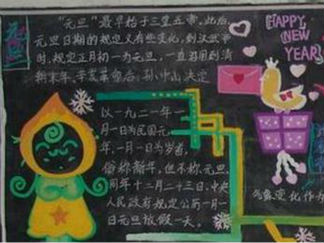 元旦
"元旦"最早始于三皇五帝。此后
元旦日期的规定又有些变化,到汉武帝
时,规定正月初一为元旦,一直沿用到清
朝末年。辛亥革命后,孙中山决定
以一九二一年一
月一日为民国元
年,一月一日为岁首,
俗称新年,但不称元旦。
同年十二月二十三日,中央
人民政府规定公历一月一
日元旦放假一天。
HAPPY
NEW
YEAR